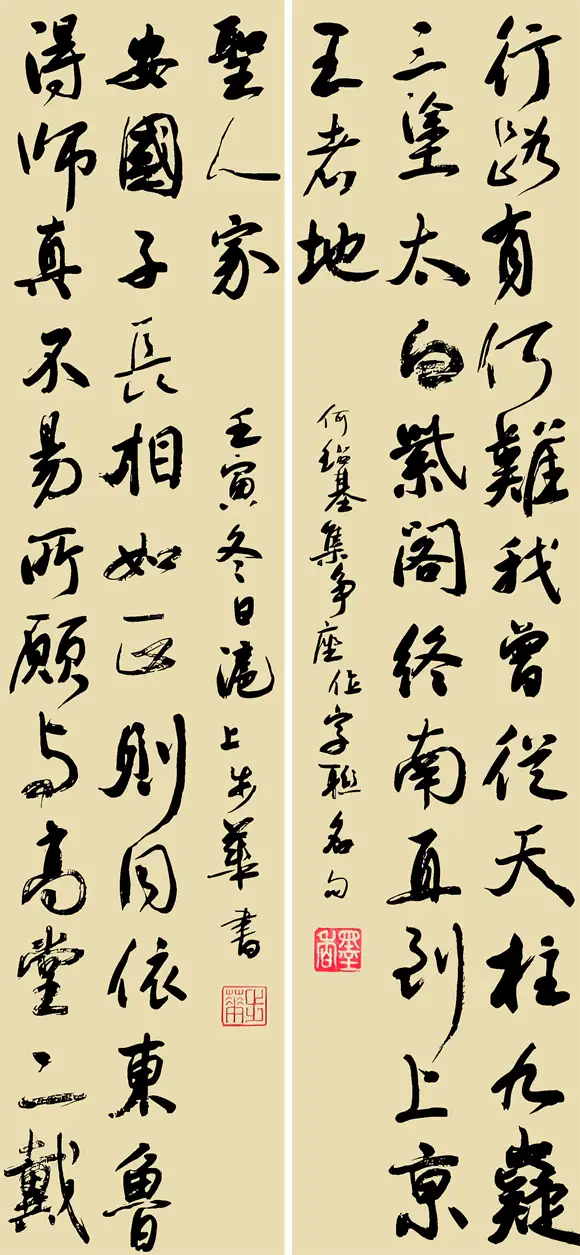 行路有何難我曾從天柱九嶷
三塗太白紫閣終南直到上京
王者地
何紹基集争座位字聯名句
墨香
得師真不易所願与高堂二戴
安國子長相如正則同依東魯
聖人家
壬寅冬日滬上步華書
步華